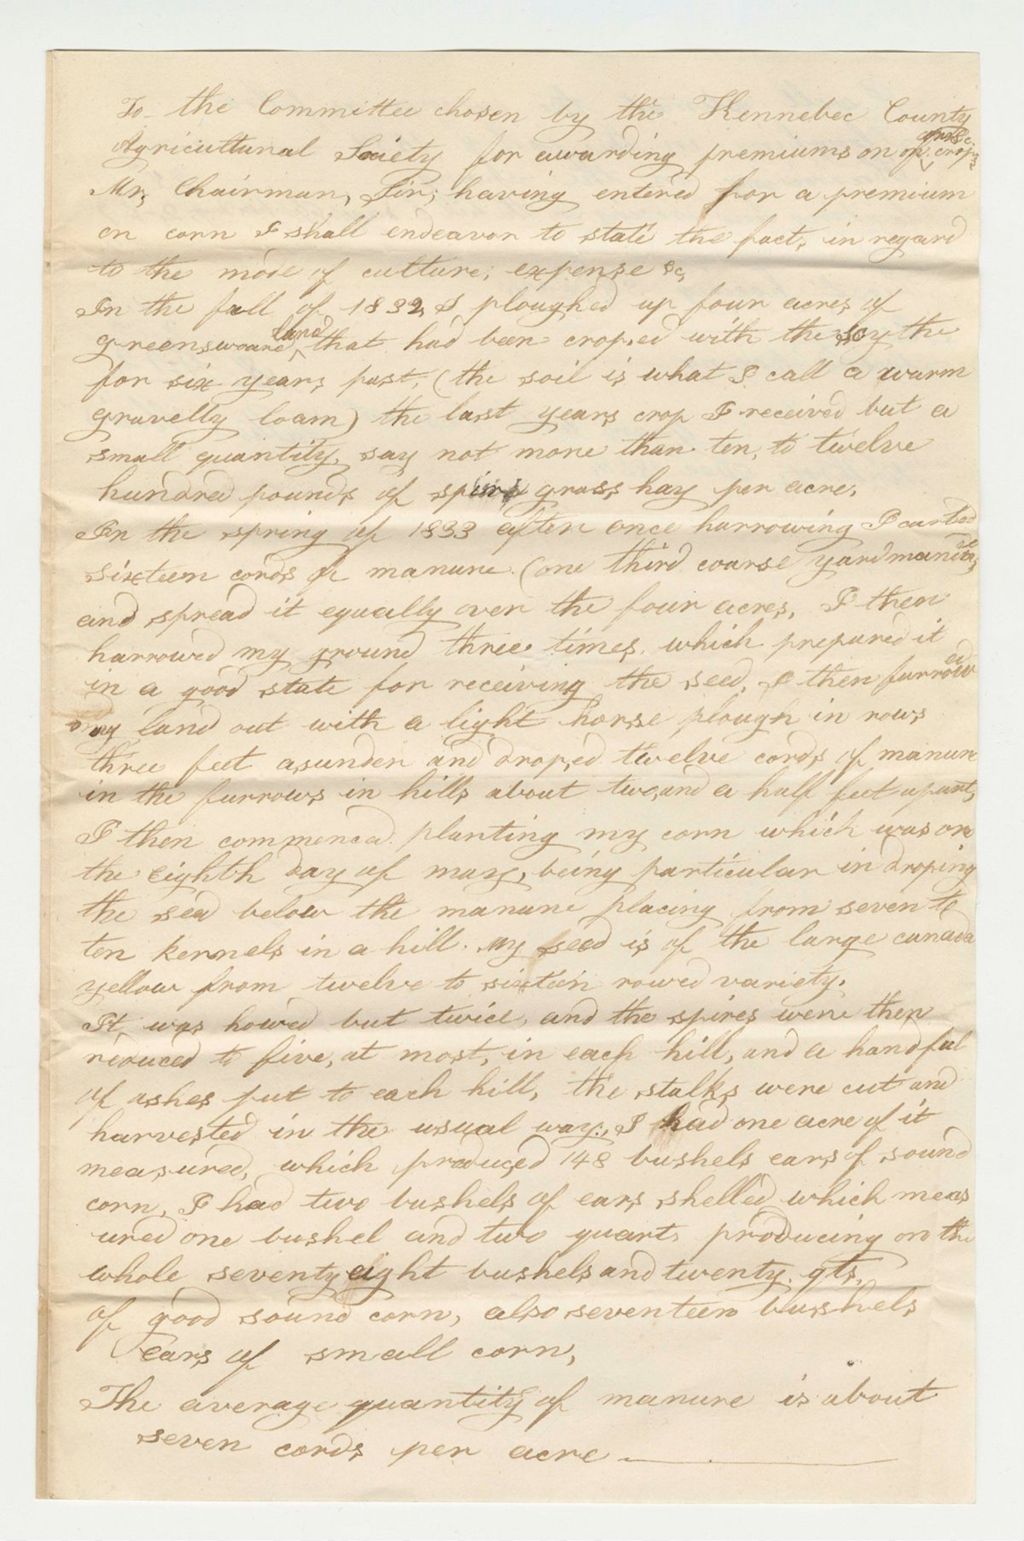 To the Committee chosen by the Kennebec County
Agricultural Society for awarding premiums on crops
Mr, Chairman, Sir, having entered for a premium
on corn I shall endeavor to state the facts, in regard
to the mode of culture, expense &c,
In the fall of 1832, I, ploughed up four acres of
greensward land that had been croped with the scythe
for six years past, (the soil is what I call a warm
gravelly loam) the last years crop I received but a
small quantity, say not more than ten, to twelve
hundred pounds of grass hay per acre,
In the spring of 1833 after once harrowing I carted
sixteen cords of manure (one third coarse yard manure,
and spread it equally over the four acres, I then
harrowed my ground three times, which prepared it
in a good state for receiving the seed, I then furrowed
my land out with a light horse plough in rows
three feet asunder and droped twelve cords of manure
in the furrows in hills about two, and a half feet apart,
I then commenced planting my corn which was on
the eighth day of may, being particular in droping
the seed below the manure placing from seven to
ten kernels in a hill. My seed is of the large canada
yellow from twelve to sixteen rowed variety.
It, was howed but twice, and the spires were then
reduced to five, at most, in each hill, and a handful
of ashes put to each hill, the stalks were cut and
harvested in the usual way, I had one acre of it
measured, which produced 148 bushels ears of sound
corn, I had two bushels of ears shelled which meas
ured one bushel and two quarts producing on the
whole seventy eight bushels and twenty. qts,
of good sound corn, also seventeen bushels
ears of small corn,
The average quantity of manure is about
seven cords per acre